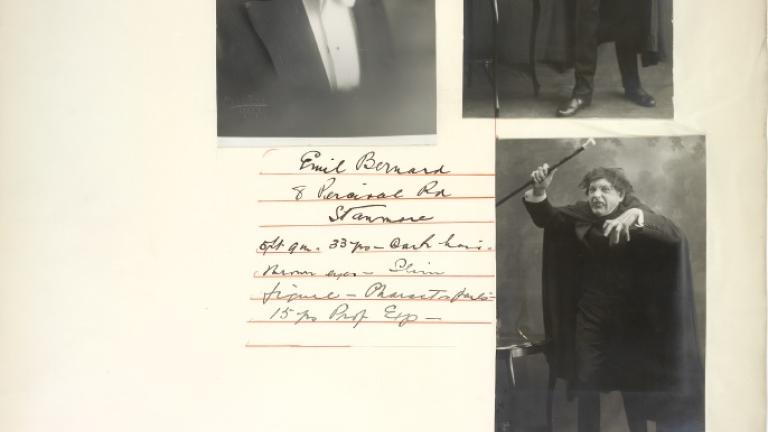 Emil Bernard
8 Percival Rd
Stanmore
5ft 9in. 33 yrs – Dark hair.
Brown eyes – Slim
figure – Character parts –
15 yrs Prof Exp –